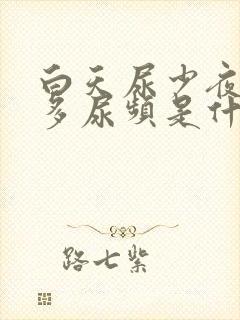 白天尿少夜
多尿频是什
路七紫